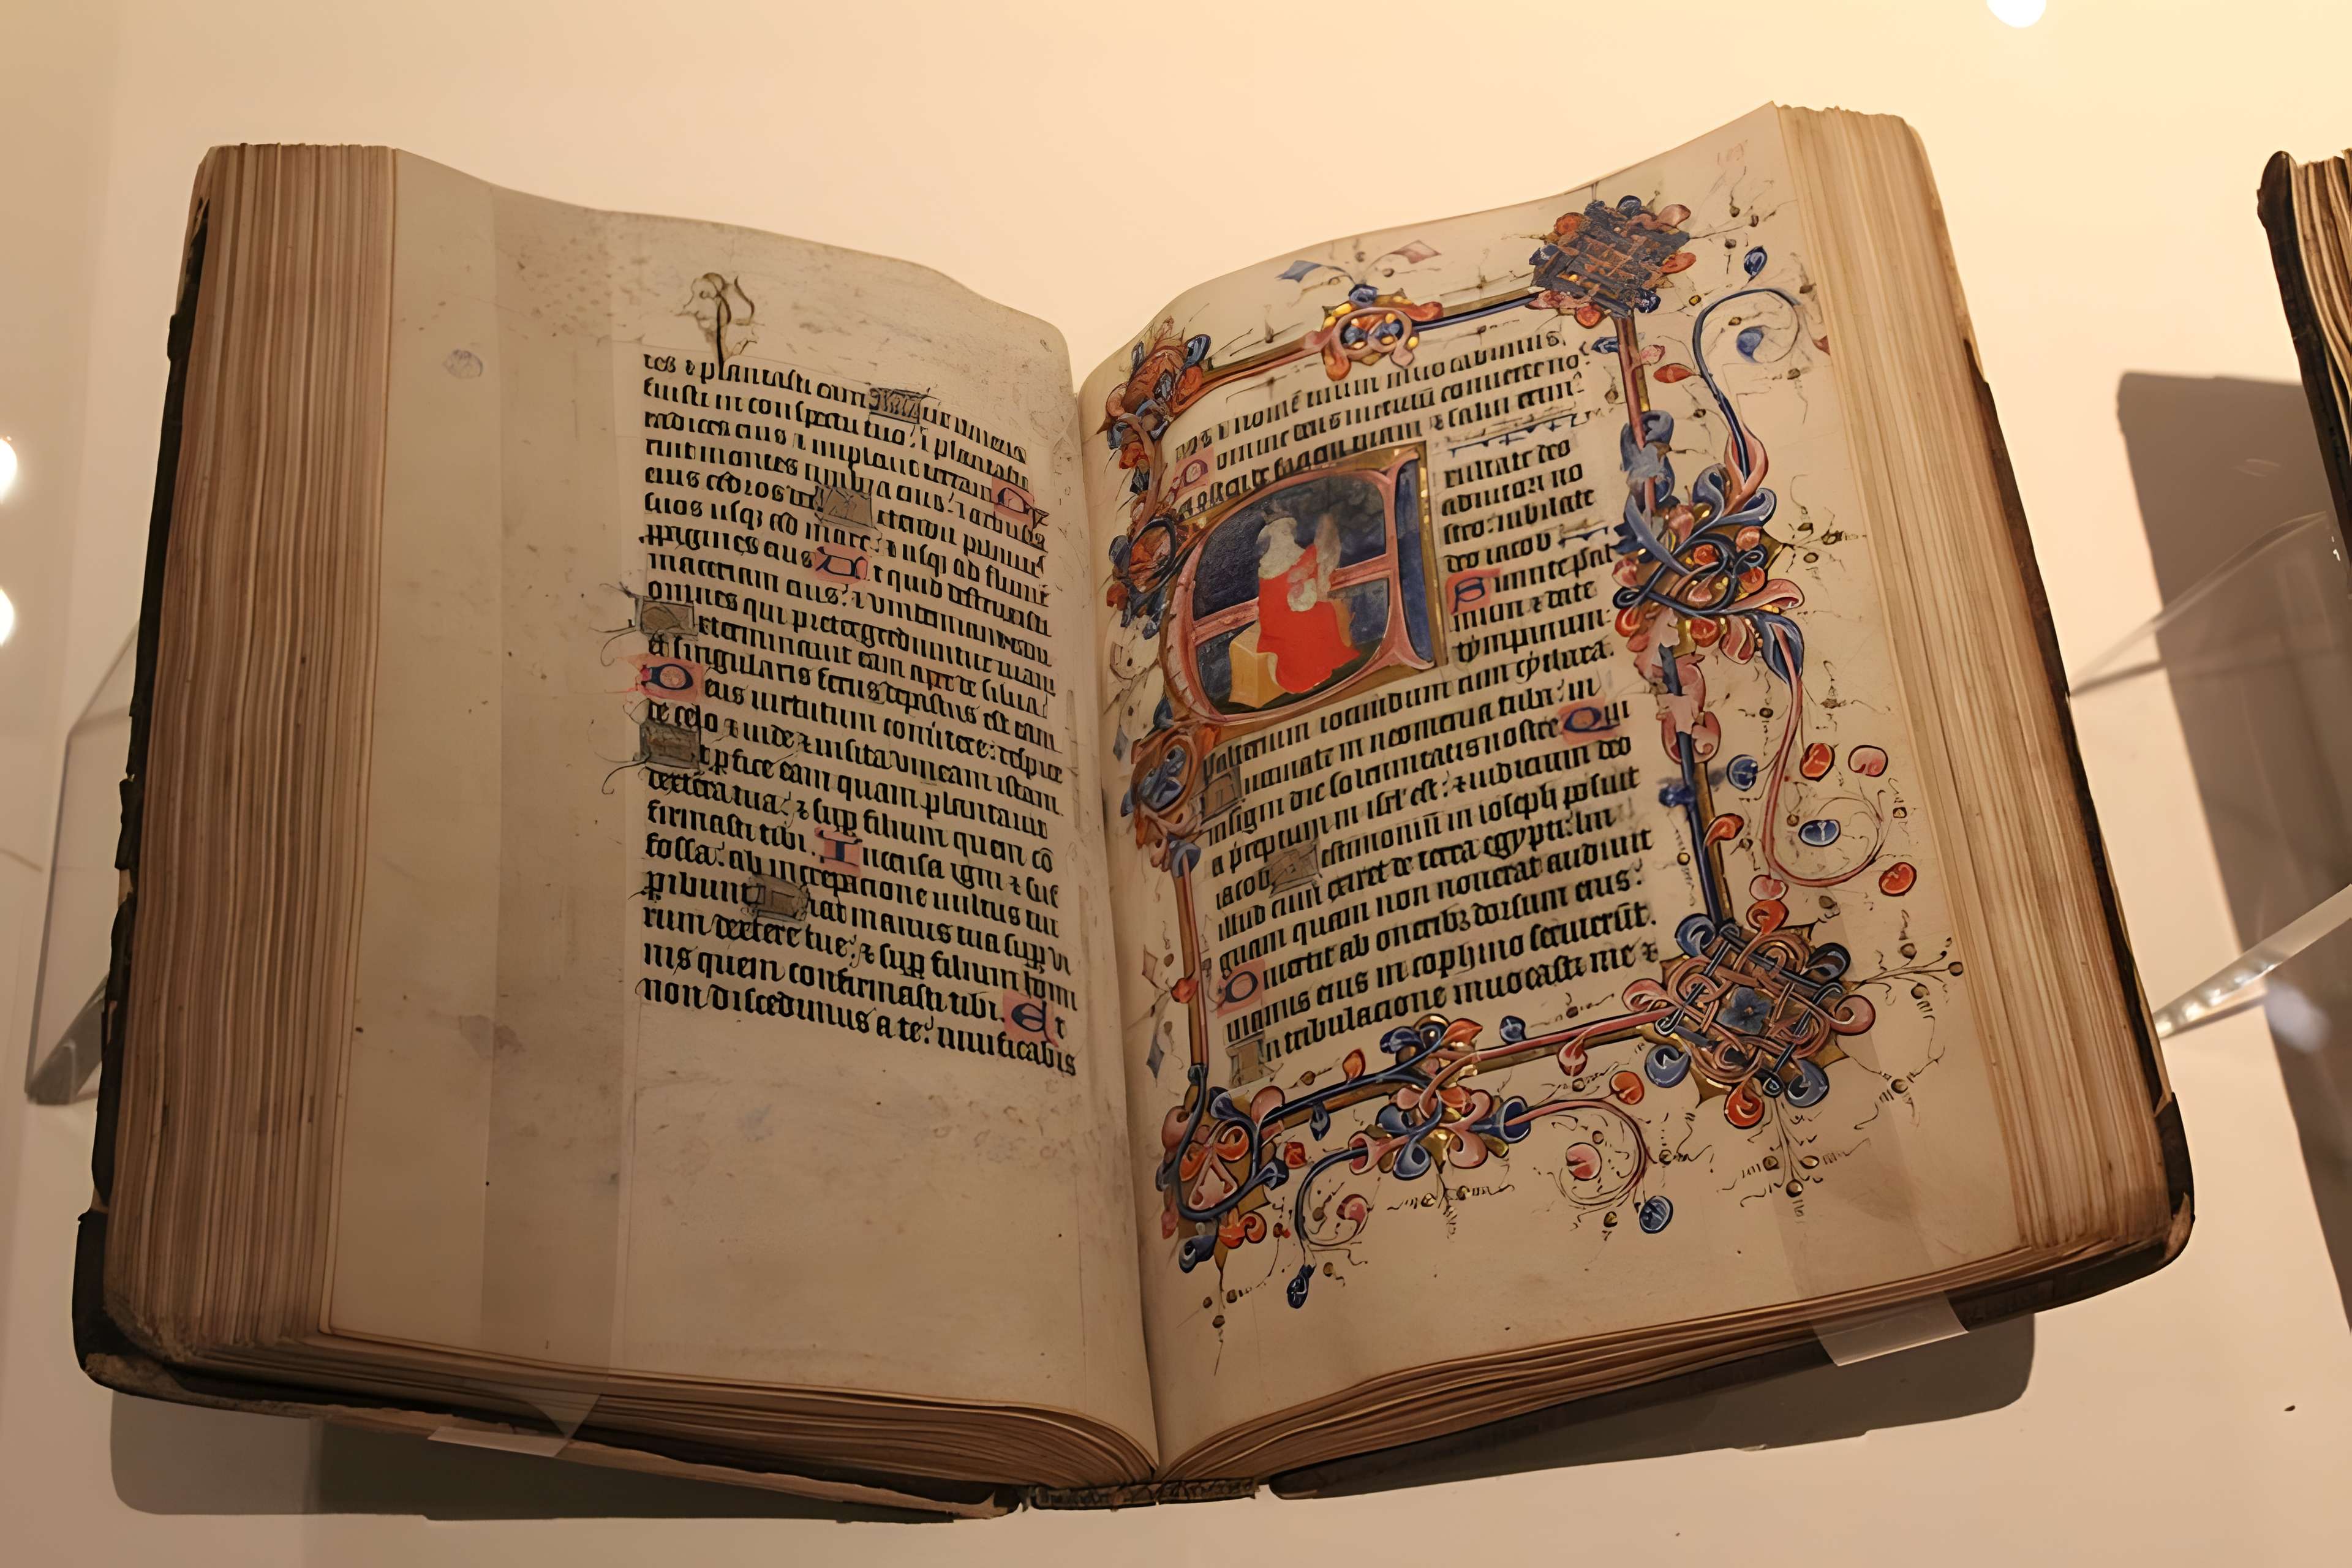 tes & plantasti eam
fuisti in conspectu tuo: & plantasti
radices eius & impleuit terram
montes umbra eius: & arbusta
eius cedros
suos usq; ad mare: & usq; ad flumē
ppagines eius Vt quid destruxisti
maceriam eius: & uindemiant eam
omnes qui pretergrediuntur uiam
xterminauit eam aper de silua:
& singularis ferus depastus est eam
Deus uirtutum conuertere: respice
de celo & uide & uisita uineam istam
t pfice eam quam plantauit
dextera tua: & sup filium quem cō
firmasti tibi. Incensa igni & suf
fossa: ab increpacione uultus tui
pibunt iat manus tua sup ui
rum dextere tue: & sup filium homi
nis quem confirmasti tibi. Et
non discedimus a te: uiuificabis
nos & nomē tuum inuocabimus
Domine deus uirtutū conuerte no
& salui erim
E
xultate deo
adiutori no
stro: iubilate
deo iacob
Sumite psal
mum & date
tympanum:
psalterium iocundum cum cythara.
uccinate in neomenia tuba: in
insigni die solennitatis nostre Qui
a preceptum in isrl' est: & iudicium deo
iacob estimoniū in ioseph posuit
illud cum exiret de terra egypti: lin
guam quam non nouerat audiuit
Diuertit ab oneribz dorsum eius:
manus eius in cophino seruierūt.
In tribulacione inuocasti me &